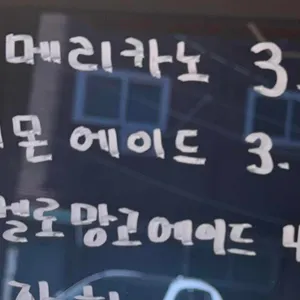 메리카노 3.
몬에이드 3.
멜로망고에이드 4